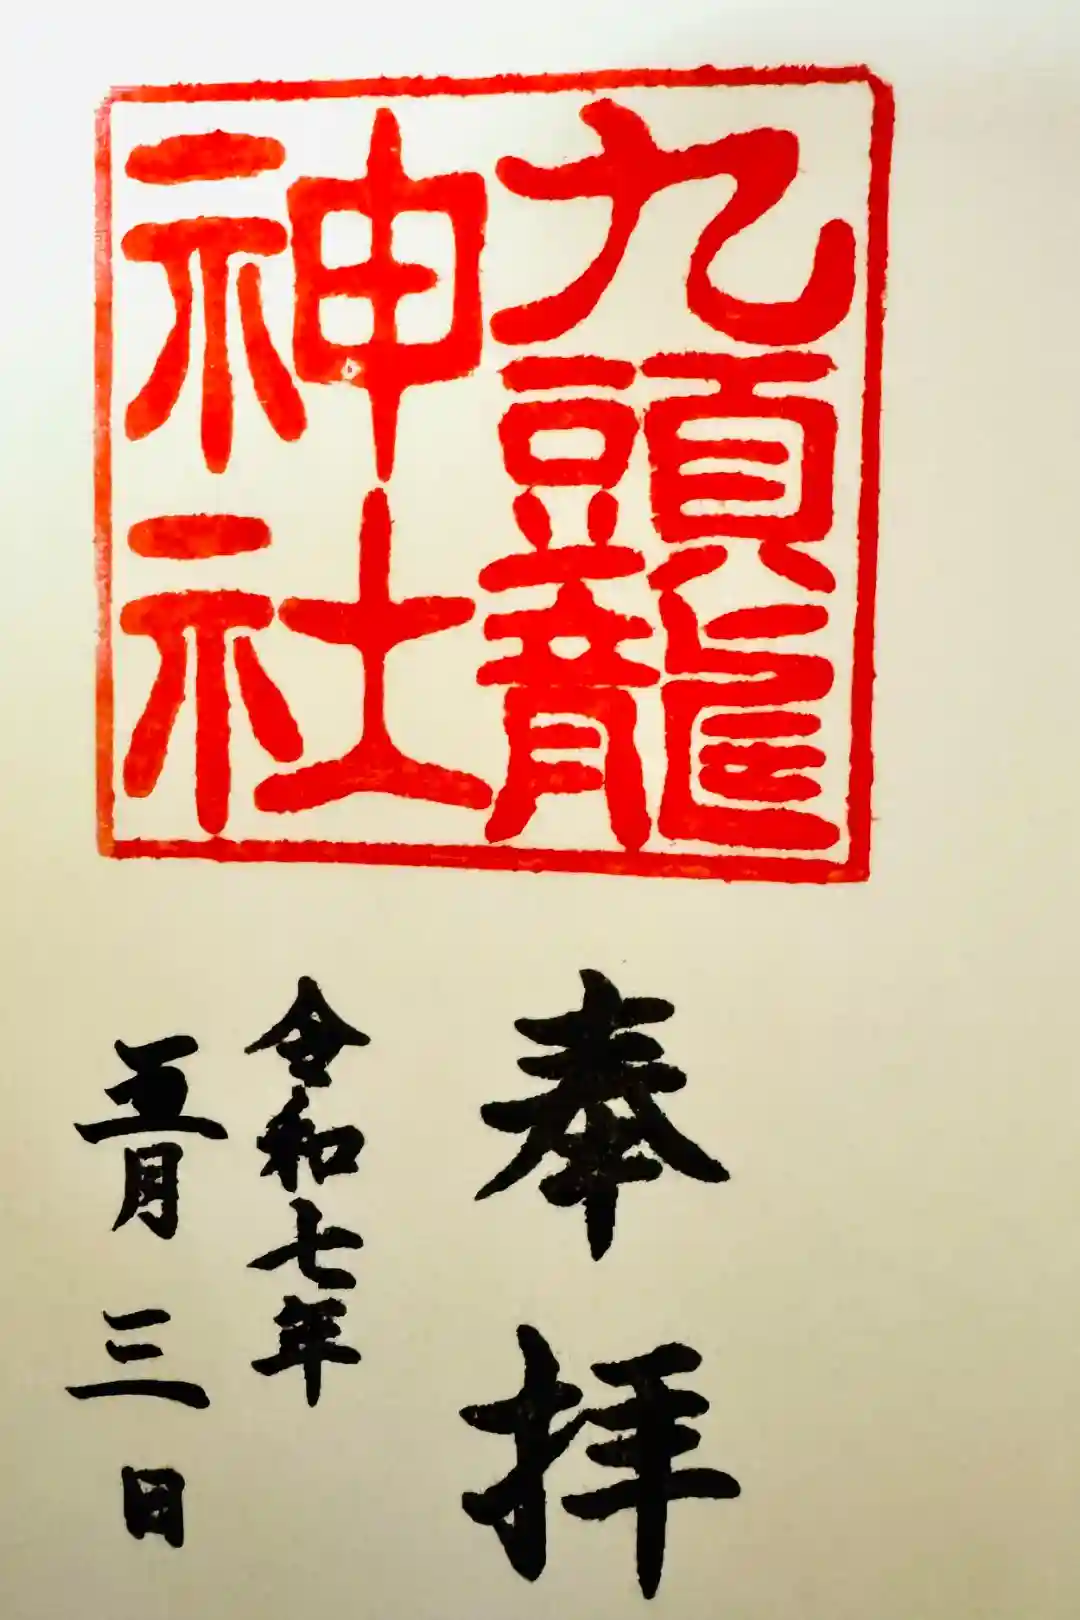 九頭龍
神社
奉拝
令和七年
五月三日